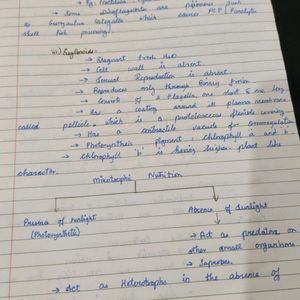 → Some Dinoflagellates are poisonous such
as Gonyaulax Catenella which causes PSP (Paralytic
shell fish poisoning)
iii) Euglenoids:-
→ Stagnant fresh H2O
→ Cell wall is absent
→ Sexual Reproduction is absent
→ Reproduces only through Binary fission
→ Consist of 2 flagella, one short & one long
→ Has a coating around its plasma membrane
called pellicle, which is a proteinaceous flexible covering
→ Has a contractile vacuole for Osmoregulation
→ Photosynthetic pigment → chlorophyll a and b
→ chlorophyll 'b' is having higher plant like
character.
Mixotrophic Nutrition
Presence of sunlight Absence of Sunlight
(Photosynthetic) → Act as predators on
other small organisms
→ Saprobes.
→ Act as Heterotrophs in the absence of